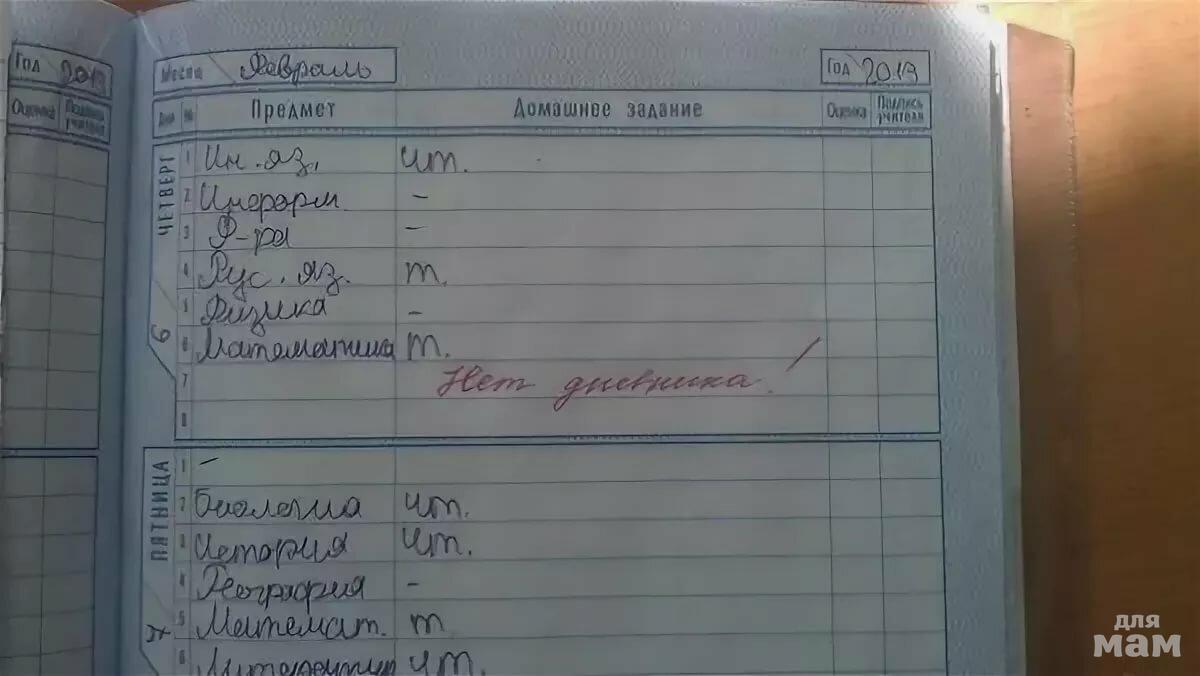 Год 2019
Оценка Подпись учителя
Месяц Февраль Год 2019
Дни № Предмет Домашнее задание Оценка Подпись учителя
ЧЕТВЕРГ 6
1 Ин. яз. чт.
2 Информ. -
3 Ф-ра -
4 Рус. яз. т.
5 Физика -
6 Математика т.
7 Нет дневника!
8
ПЯТНИЦА 7
1 -
2 Биология чт.
3 История чт.
4 География -
5 Математ. т
6 чт.
для
мам